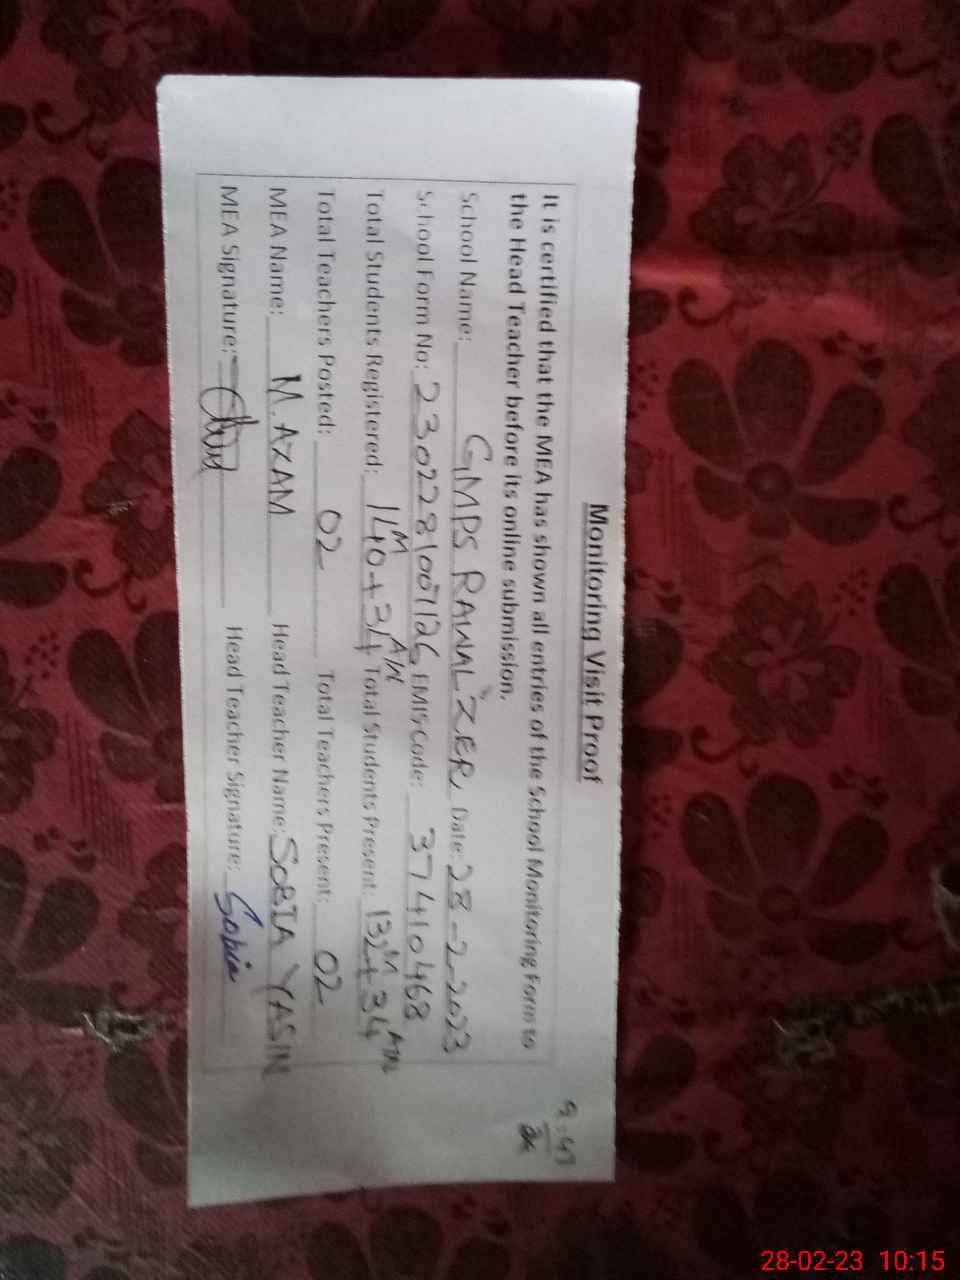 Monitoring Visit Proof
It is certified that the MEA has shown all entries of the School Monitoring Form to
the Head Teacher before its online submission.
School Name: GMPS RAWAL ZER Date: 28-2-2023
School Form No: 230228100126 EMIS Code: 37410468
Total Students Registered: 140+34 Total Students Present: 132+34
Total Teachers Posted: 02 Total Teachers Present: 02
MEA Name: M. AZAM Head Teacher Name: SOBIA YASIN
MEA Signature: Head Teacher Signature: Sobia
28-02-23 10:15